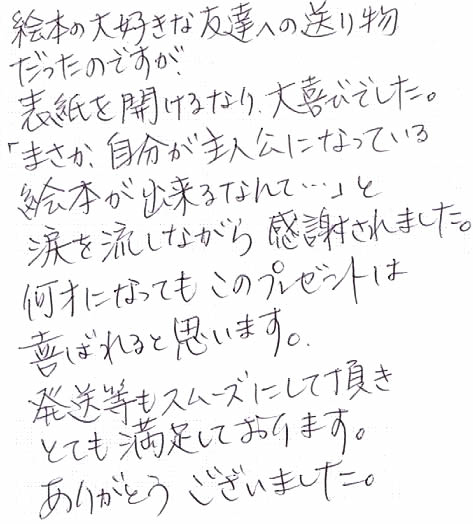 絵本の大好きな友達への送り物
だったのですが、
表紙を開けるなり、大喜びでした。
「まさか、自分が主人公になっている
絵本が出来るなんて…」と
涙を流しながら感謝されました。
何才になってもこのプレゼントは
喜ばれると思います。
発送等もスムーズにして頂き
とても満足しております。
ありがとうございました。